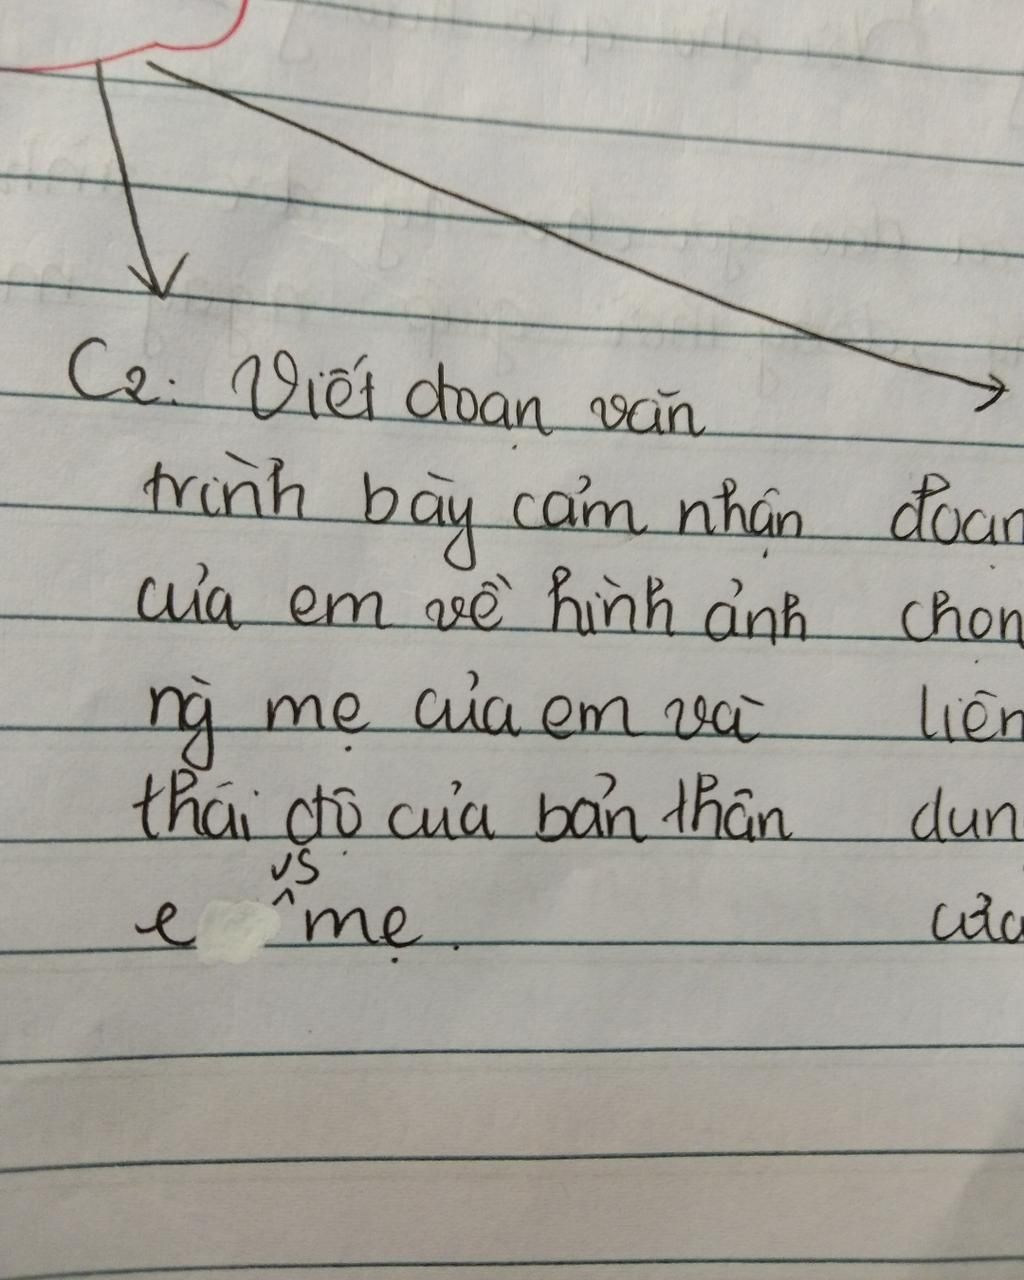 C2: Viết đoạn văn
trình bày cảm nhận đoạn
của em về hình ảnh chọn
ng` mẹ của em và liên
thái độ của bản thân dun
e vs mẹ. của